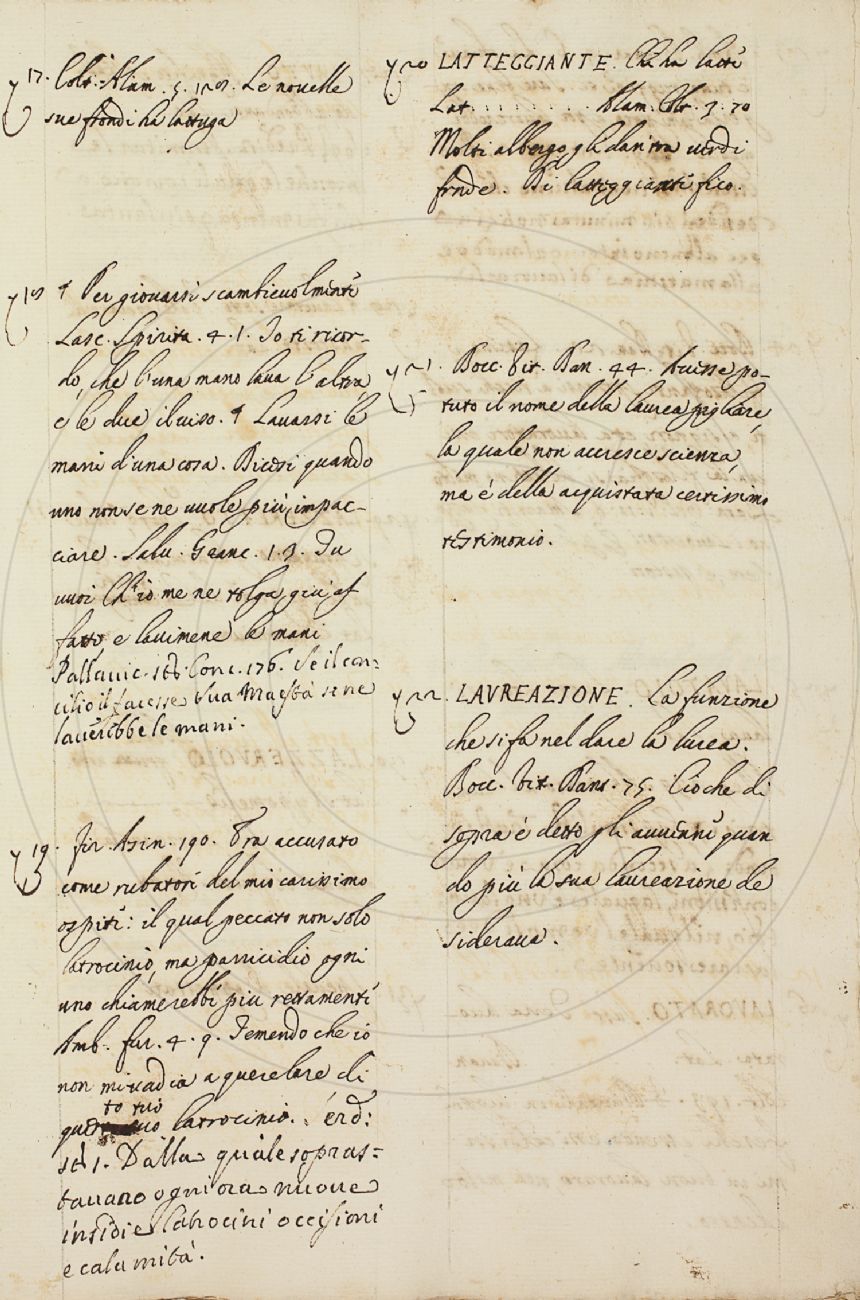 17. Colt. Alam. 5. 128. Le novelle
sue frondi ha lattuga
18 ¶ Per giovarsi scambievolmente
Lasc. Spirita. 4. 1. Io ti ricor-
do, che l'una mano lava l'altra,
e le due il viso. ¶ Lavarsi le
mani d'una cosa. Dicesi quando
uno non se ne vuole più impac-
ciare. Salv. Granc. 1. 3. Tu
vuoi Ch'io me ne tolga giù af
fatto, e lavimene le mani
Pallavic. ist. Conc. 176. Se il con-
cilio il facesse Sua Maestà se ne
laverebbe le mani.
19. Fir. Asin. 190. Era accusato
come rubatore del mio carissimo
ospite: il qual peccato non solo
latrocinio, ma parricidio ogni
uno chiamerebbe più rettamente
Amb. fur. 4. 9. Temendo che io
non mi vadia a querelare di
questo tuo latrocinio.
ist. 1. Dalla quale sopras=
tavano ogni ora nuove
insidie latrocini occisioni
e calamità.
20 LATTEGGIANTE. Che ha latte
Lat. . . . . . . . . Alam. Colt. 3. 70
Molti albergo gli dan tra verdi
fronde. Di latteggianti fico.
21. Bocc. Vit. Dan. 44. Avesse po-
tuto il nome della laurea pigliare,
la quale non accresce scienza,
ma è della acquistata certissimo
testimonio.
22. LAVREAZIONE. La funzione
che si fa nel dare la lurea.
Bocc. Vit. Dant. 75. Cioche di
sopra è detto gli avvenne quan
do più la sua laureazione de
siderava.